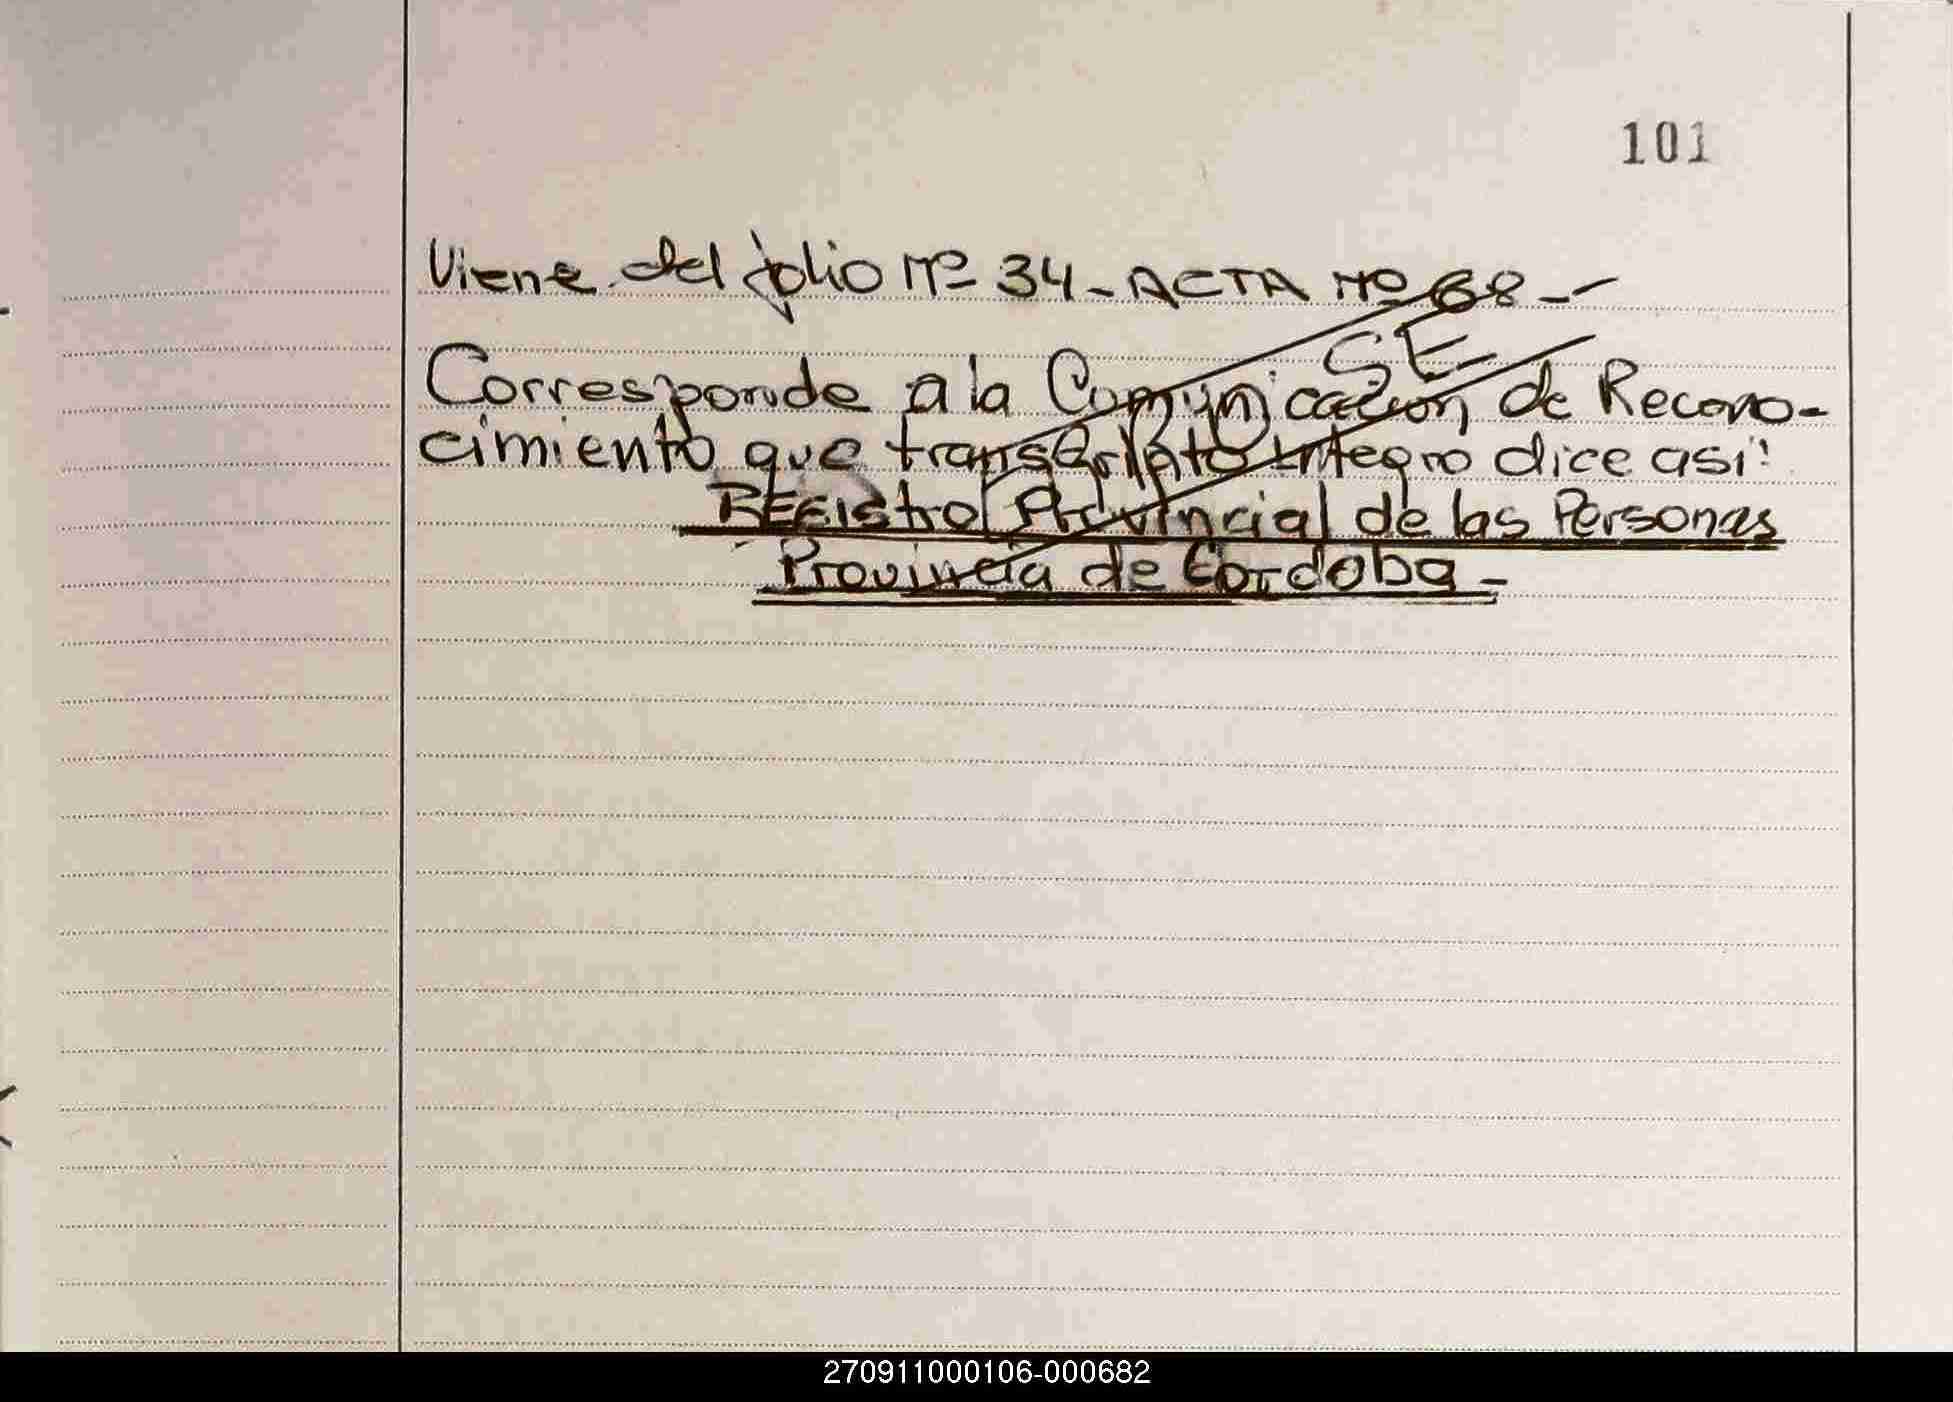 101
Viene del folio Nº 34 - ACTA Nº 68 - -
Corresponde a la Comunicación de Recono-
cimiento que transcripto integro dice asi:
REGIStro Provincial de las Personas
Provincia de Cordoba -
270911000106-000682